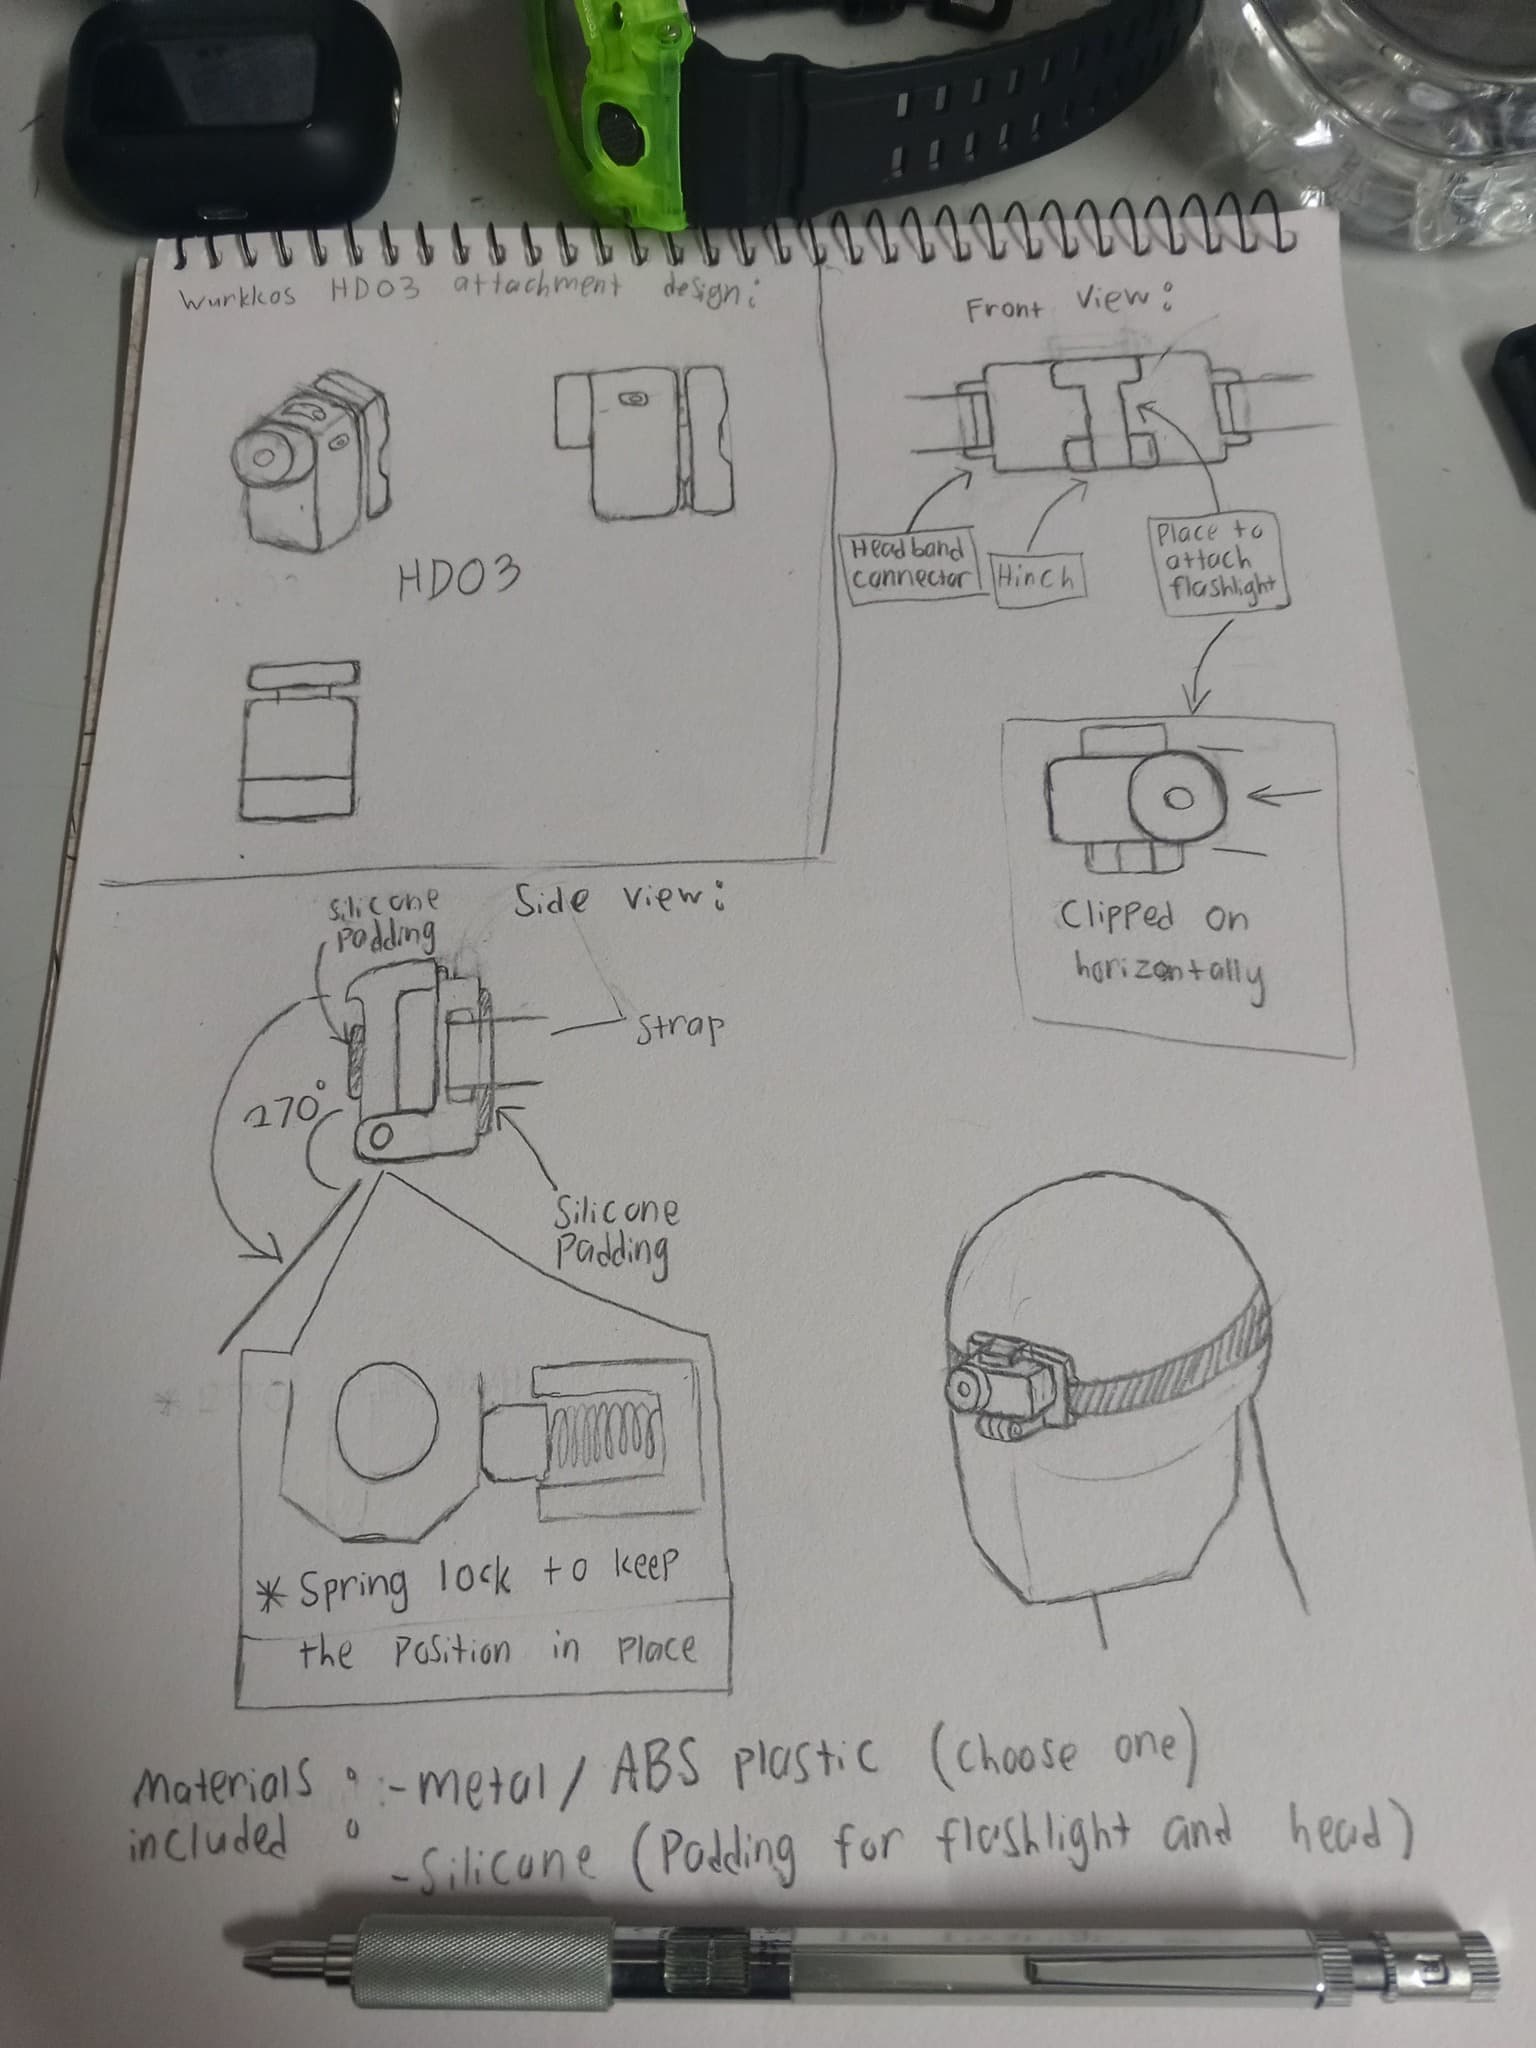 Wurkkos HD03 attachment design:
HD03
Front View:
Headband
connector
Hinch
Place to
attach
flashlight
Clipped on
horizontally
Side View:
Silicone
Padding
Strap
270°
Silicone
Padding
* Spring lock to keep
the Position in Place
Materials
included
:
- Metal / ABS plastic (Choose one)
- Silicone (Padding for flashlight and head)